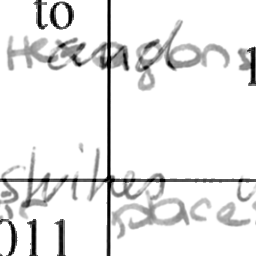 to
Hexagons
1
strikes
places
011